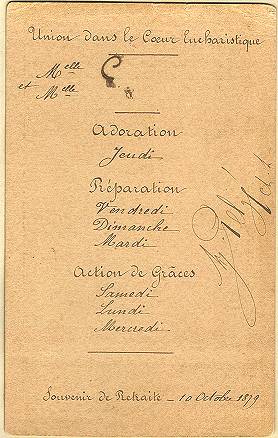 Union dans le Cœur Eucharistique
Melle
et Melle
Adoration
Jeudi
Réparation
Vendredi
Dimanche
Mardi
Action de Grâces
Samedi
Lundi
Mercredi
Souvenir de Retraite _ 10 Octobre 1879